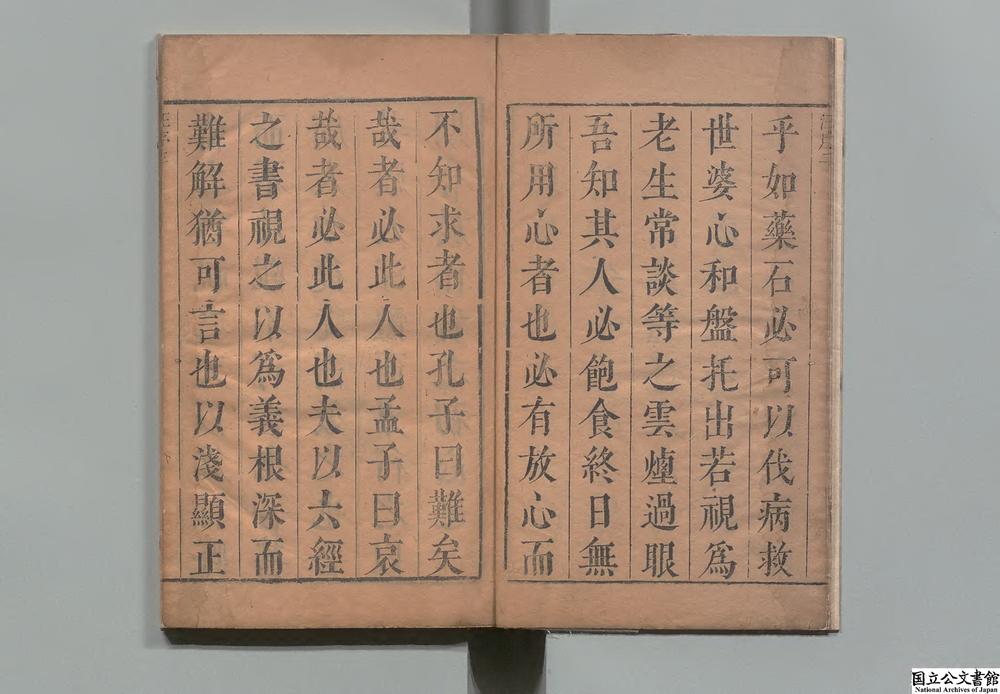 乎如藥石必可以伐病救
世婆心和盤托出若視爲
老生常談等之雲煙過眼
吾知其人必飽食終日無
所用心者也必有放心而
不知求者也孔子曰難矣
哉者必此人也孟子曰哀
哉者必此人也夫以六經
之書視之以爲義根深而
難解猶可言也以淺顯正
国立公文書館
National Archives of Japan